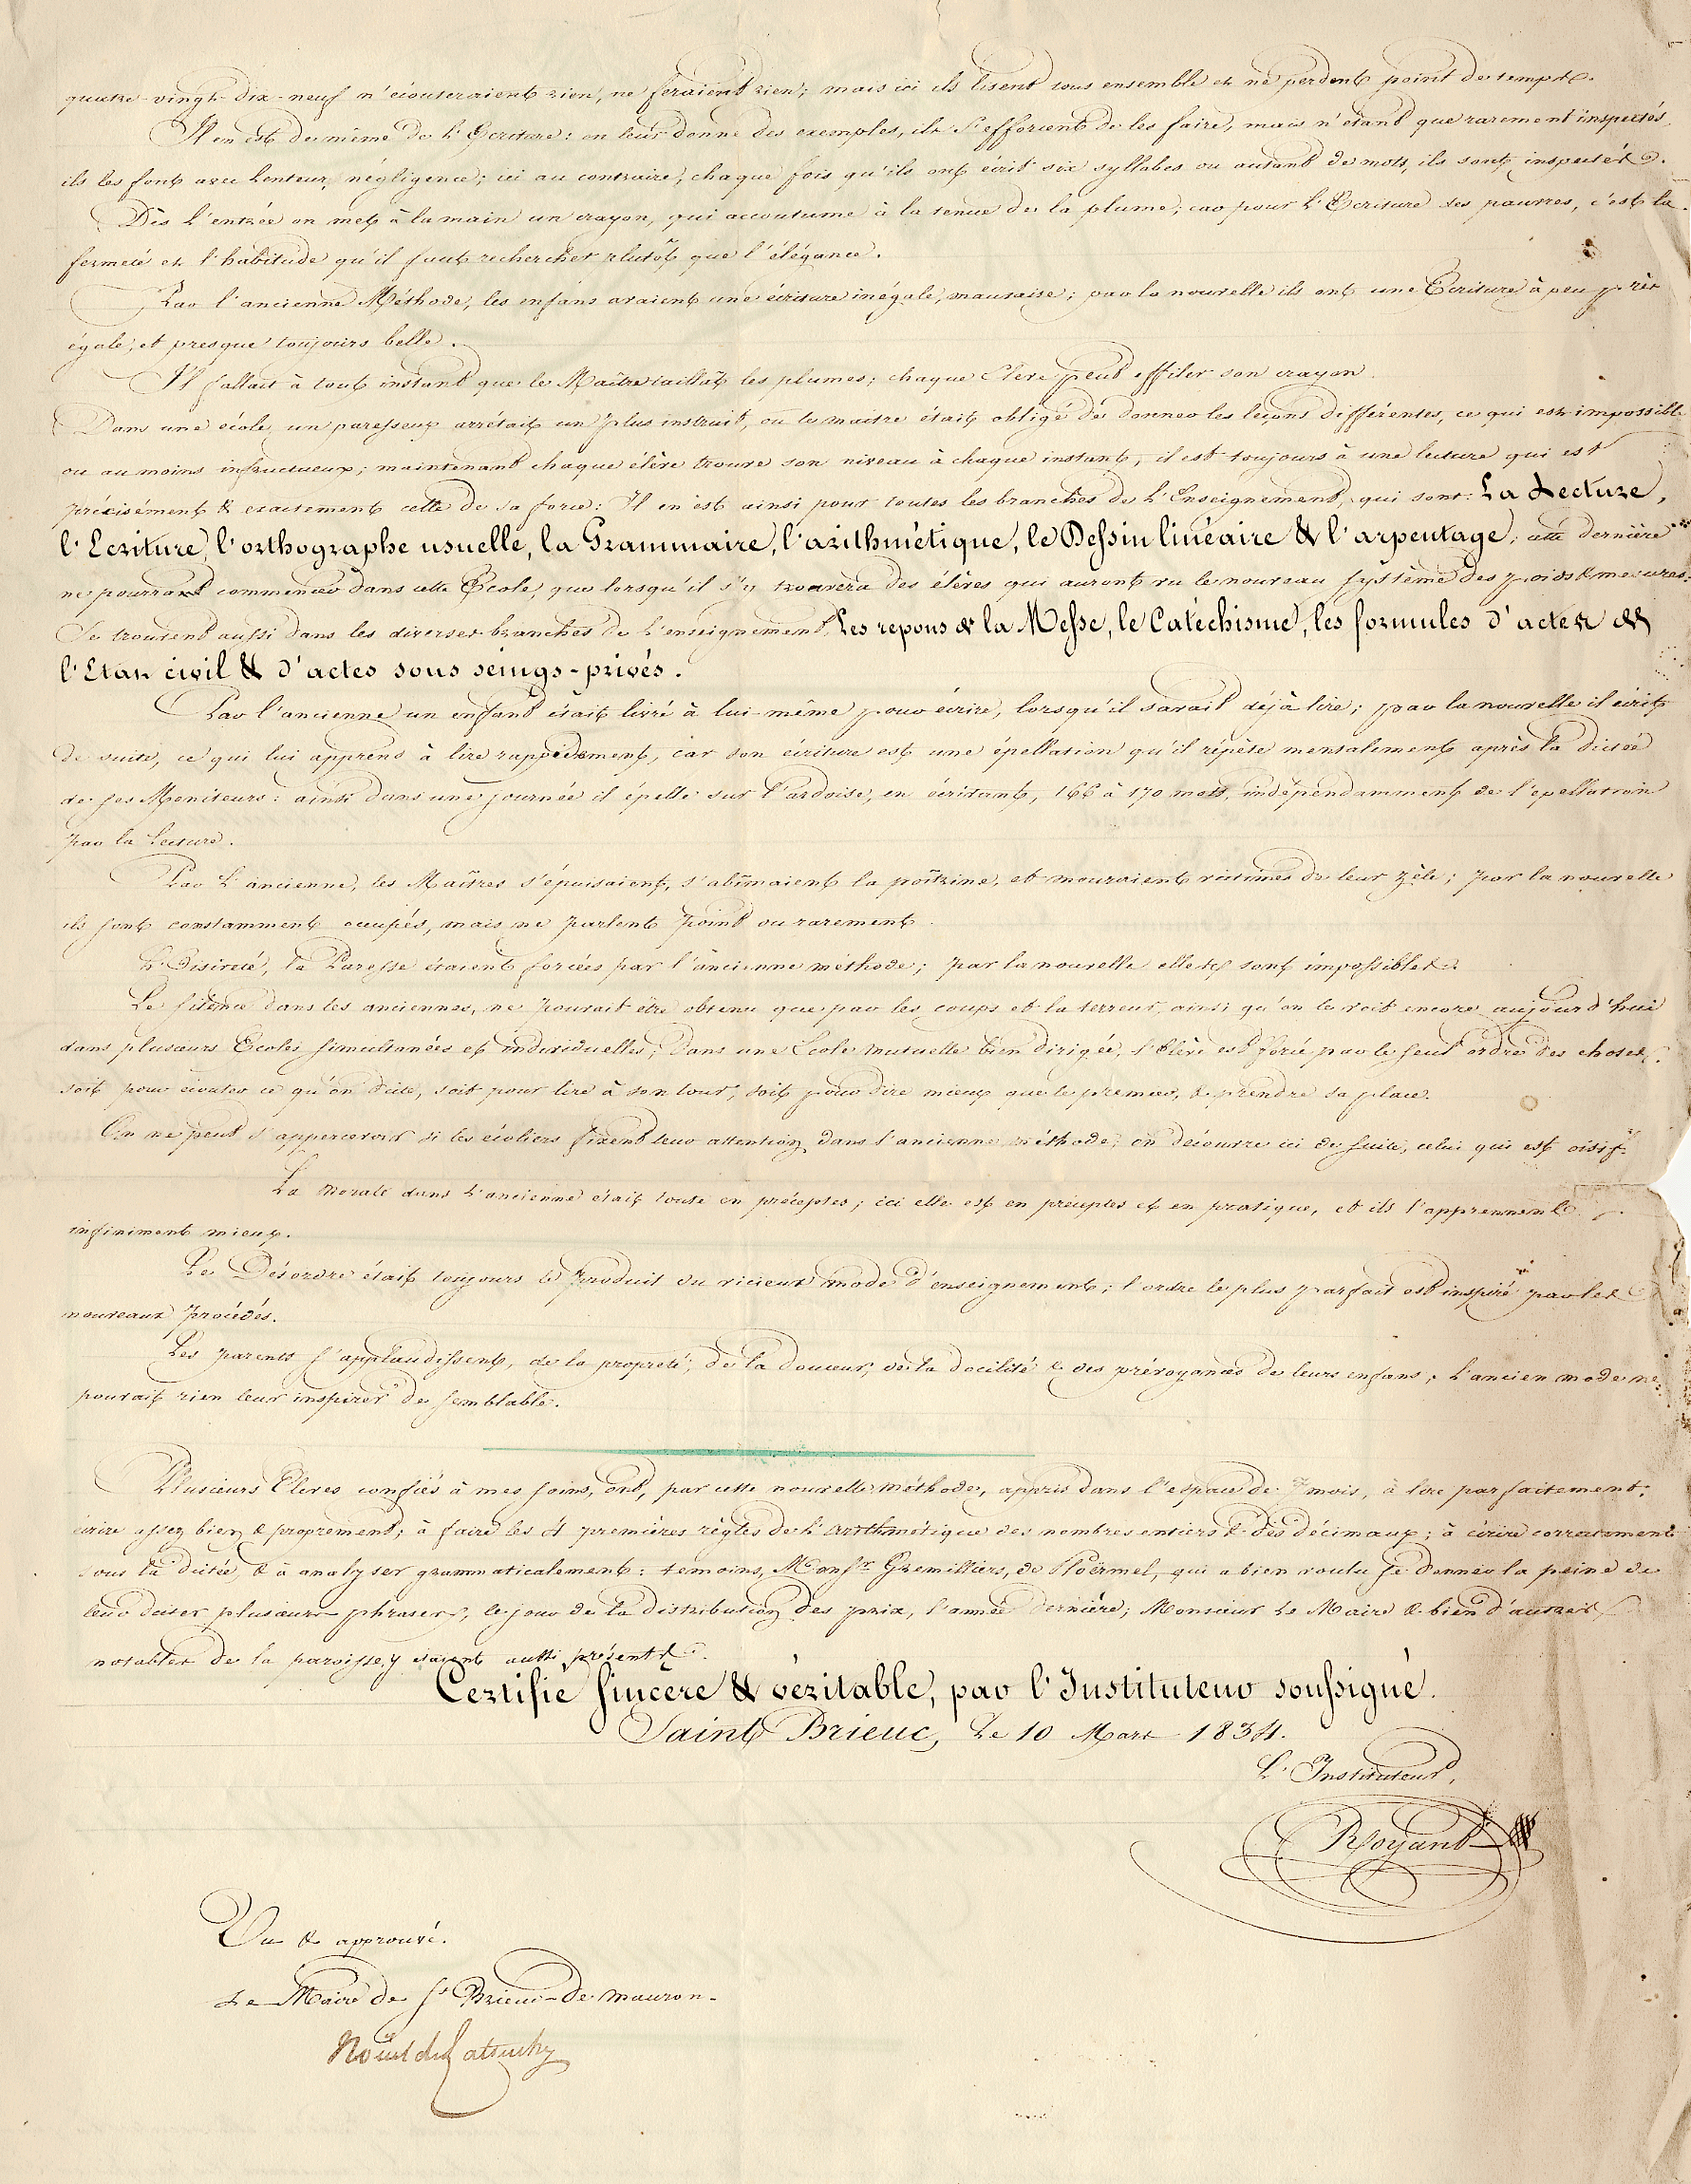 quatre-vingt-dix-neuf n'écouteraient rien, ne feraient rien; mais ici ils lisent tous ensemble et ne perdent point de temps.
Il en est de même de l'Ecriture: on leur donne des exemples, ils s'efforcent de les faire, mais n'étant que rarement inspectés,
ils les font avec lenteur, négligence; ici au contraire, chaque fois qu'ils ont écrit six syllabes ou autant de mots, ils sont inspectés.
Dès l'entrée on met à la main un crayon, qui accoutume à la tenue de la plume; car pour l'Ecriture des pauvres, c'est la
fermeté et l'habitude qu'il faut rechercher plutôt que l'élégance.
Par l'ancienne Méthode, les enfans avaient une écriture inégale, mauvaise; par la nouvelle ils ont une Ecriture à peu près
égale, et presque toujours belle.
Il fallait à tout instant que le Maître taillât les plumes; chaque Elève peut effiler son crayon.
Dans une école, un paresseux arrêtait un plus instruit, ou le maître était obligé de donner les leçons différentes, ce qui est impossible
ou au moins infructueux; maintenant chaque élève trouve son niveau à chaque instant, il est toujours à une lecture qui est
précisément & exactement celle de sa force: Il en est ainsi pour toutes les branches de l'Enseignement, qui sont: La Lecture,
l'Ecriture, l'orthographe usuelle, la Grammaire, l'arithmétique, le Dessin linéaire & l'arpentage; cette dernière
ne pourrant commencer dans cette Ecole, que lorsqu'il s'y trouvera des élèves qui auront vu le nouveau Système des poids & mesures.
Se trouvent aussi dans les diverses branches de l'enseignement, Les repons de la Messe, le Catéchisme, les formules d'actes de
l'Etat civil & d'actes sous seings-privés.
Par l'ancienne un enfant était livré à lui-même pour écrire, lorsqu'il savait déjà lire; par la nouvelle il écrit
de suite, ce qui lui apprend à lire rapidement, car son écriture est une épellation qu'il répète mentalement après la dictée
de ses Moniteurs: ainsi dans une journée il épelle sur l'ardoise, en écrivant, 166 à 170 mots, indépendamment de l'epellation
par la lecture.
Par l'ancienne, les Maîtres s'épuisaient, s'abîmaient la poîtrine, et mouraient victimes de leur zèle; par la nouvelle
ils sont constamment occupés, mais ne parlent point ou rarement.
L'Oisiveté, la Paresse étaient forcées par l'ancienne méthode; par la nouvelle elles sont impossibles.
Le silence dans les anciennes, ne pouvait être obtenu que par les coups et la terreur, ainsi qu'on le voit encore aujourd'hui
dans plusieurs Ecoles simultanées et individuelles; Dans une Ecole mutuelle bien dirigée, l'Elève est forcé par le seul ordre des choses,
soit pour écouter ce qu'on dicte, soit pour lire à son tour, soit pour dire mieux que le premier, & prendre sa place.
On ne peut s'appercevoir si les écoliers fixent leur attention dans l'ancienne méthode; on découvre ici de suite, celui qui est oisif.
La Morale dans l'ancienne était toute en préceptes; ici elle est en préceptes et en pratique, et ils l'apprennent
infiniment mieux.
Le Désordre était toujours le produit du vicieux mode d'enseignement; l'ordre le plus parfait est inspiré par les
nouveaux procédés.
Les parents s'applaudissent, de la propreté, de la douceur, de la docilité & des prévoyances de leurs enfans; l'ancien mode ne
pouvait rien leur inspirer de semblable.
Plusieurs Elèves confiés à mes soins, ont, par cette nouvelle méthode, appris dans l'espace de 7 mois, à lire parfaitement,
écrire assez bien & proprement; à faire les 4 premières règles de l'arithmétique des nombres entiers & des décimaux; à écrire correctement
sous la dictée, & à analyser grammaticalement: temoins, Monsr. Gremilliers, de Ploërmel, qui a bien voulu se donner la peine de
leur dicter plusieurs phrases, le jour de la distribution des prix, l'année dernière; Monsieur le Maire & bien d'autres
notables de la paroisse, y étaient aussi présents.
Certifié sincère & véritable, par l'Instituteur soussigné.
Saint Brieuc, Le 10 Mars 1834.
L'Instituteur,
Royant
Vu & approuvé.
Le Maire de St Brieuc-de mauron.